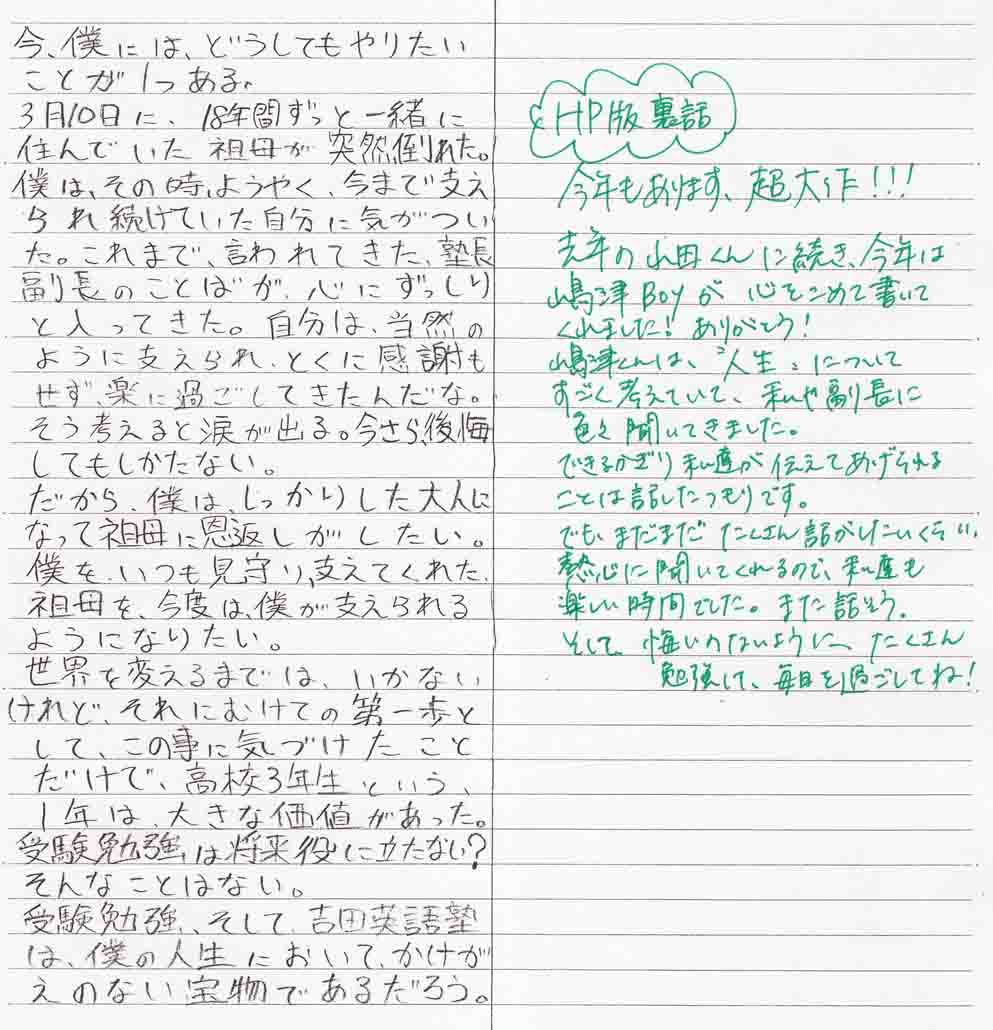 今、僕には、どうしてもやりたい
ことが1つある。
3月10日に、18年間ずっと一緒に
住んでいた祖母が突然倒れた。
僕は、その時、ようやく、今まで支え
られ続けていた自分に気がつい
た。これまで言われてきた、塾長
副長のことばが、心にずっしり
と入ってきた。自分は、当然の
ように支えられ、とくに感謝も
せず、楽に過ごしてきたんだな。
そう考えると涙が出る。今さら、後悔
してもしかたない。
だから、僕は、しっかりした大人に
なって祖母に恩返しがしたい。
僕を、いつも見守り、支えてくれた、
祖母を、今度は、僕が支えられる
ようになりたい。
世界を変えるまでは、いかない
けれど、それにむけての第一歩と
して、この事に気づけたこと
だけで、高校3年生という、
1年は、大きな価値があった。
受験勉強は将来役に立たない?
そんなことはない。
受験勉強、そして、吉田英語塾
は、僕の人生において、かけが
えのない宝物であるだろう。
HP版裏話
今年もあります、超大作!!!
去年の山田くんに続き、今年は
嶋津Boyが心をこめて書いて
くれました!ありがとう!
嶋津くんは、"人生"について
すごく考えていて、私や副長に
色々聞いてきました。
できるかぎり私達が伝えてあげられる
ことは話したつもりです。
でも、まだまだたくさん話がしたいくらい、
熱心に聞いてくれるので、私達も
楽しい時間でした。また話そう。
そして、悔いのないように、たくさん
勉強して、毎日を過ごしてね!